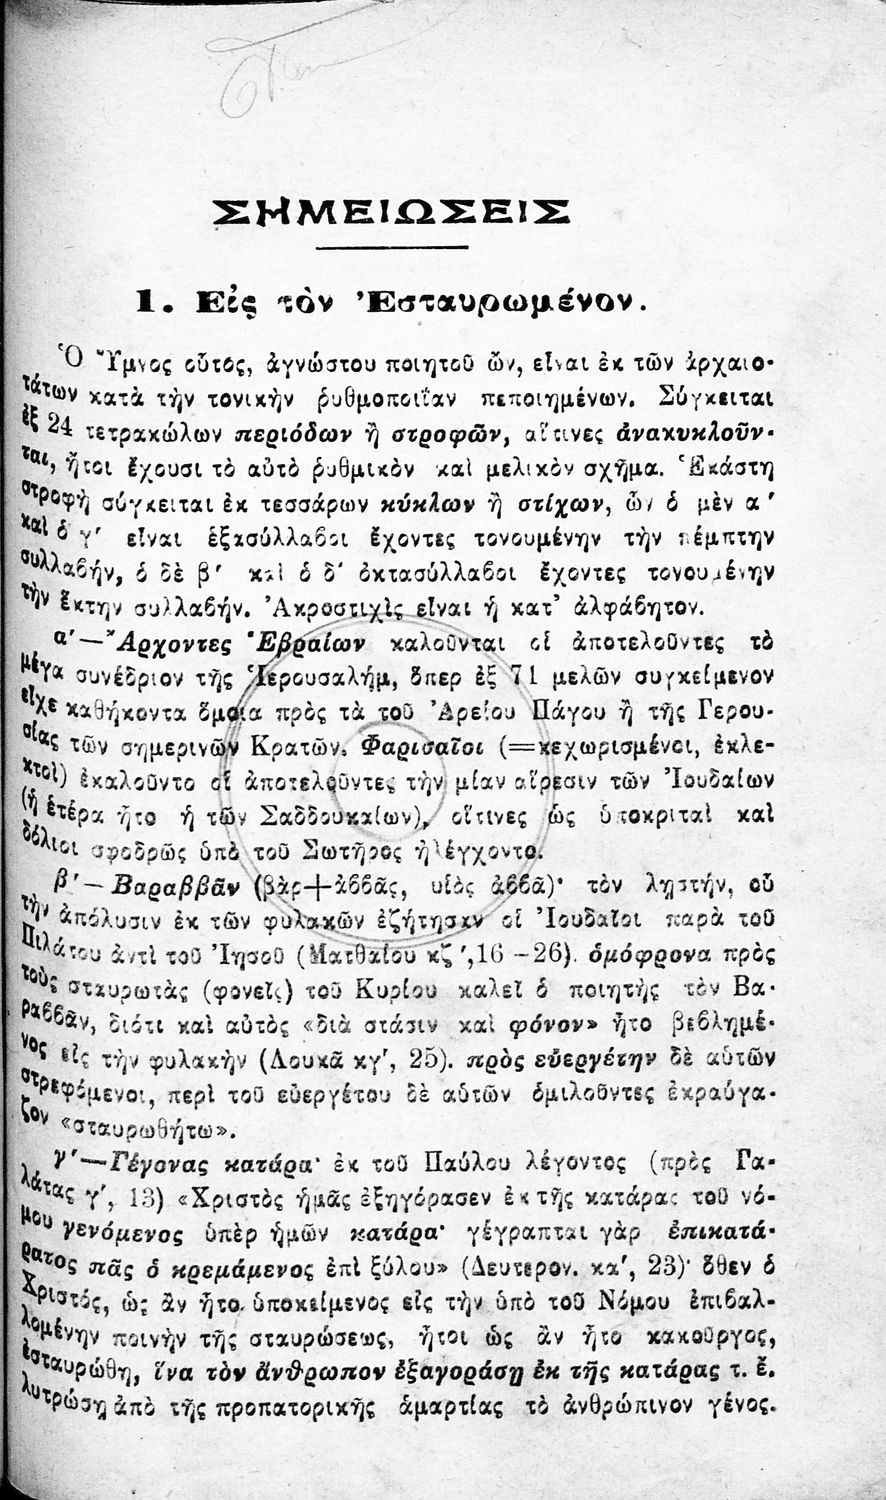 ΣΗΜΕΙΩΣΕΙΣ
1. Εἰς τὸν Ἐσταυρωμένον.
Ὁ Ὕμνος οὗτος, ἀγνώστου ποιητοῦ ὤν, εἶναι ἐκ τῶν ἀρχαιο-
τάτων κατὰ τὴν τονικὴν ῥυθμοποιΐαν πεποιημένων. Σύγκειται
ἐξ 24 τετρακώλων περιόδων ἢ στροφῶν, αἵτινες ἀνακυκλοῦν-
ται, ἤτοι ἔχουσι τὸ αὐτὸ ῥυθμικὸν καὶ μελικὸν σχῆμα. Ἑκάστη
στροφὴ σύγκειται ἐκ τεσσάρων κύκλων ἢ στίχων, ὧν ὁ μὲν α'
καὶ ὁ γ' εἶναι ἑξασύλλαβοι ἔχοντες τονουμένην τὴν πέμπτην
συλλαβήν, ὁ δὲ β' καὶ ὁ δ' ὀκτασύλλαβοι ἔχοντες τονουμένην
τὴν ἕκτην συλλαβήν. Ἀκροστιχὶς εἶναι ἡ κατ' ἀλφάβητον.
α'—Ἄρχοντες Ἑβραίων καλοῦνται οἱ ἀποτελοῦντες τὸ
μέγα συνέδριον τῆς Ἱερουσαλήμ, ὅπερ ἐξ 71 μελῶν συγκείμενον
εἶχε καθήκοντα ὅμοια πρὸς τὰ τοῦ Ἀρείου Πάγου ἢ τῆς Γερου-
σίας τῶν σημερινῶν Κρατῶν. Φαρισαῖοι (=κεχωρισμένοι, ἐκλε-
κτοὶ) ἐκαλοῦντο οἱ ἀποτελοῦντες τὴν μίαν αἵρεσιν τῶν Ἰουδαίων
(ἡ ἑτέρα ἦτο ἡ τῶν Σαδδουκαίων), οἵτινες ὡς ὑποκριταὶ καὶ
δόλιοι σφοδρῶς ὑπὸ τοῦ Σωτῆρος ἠλέγχοντο.
β'—Βαραββᾶν (βὰρ+ἀββᾶς, υἱὸς ἀββᾶ)· τὸν λῃστήν, οὗ
τὴν ἀπόλυσιν ἐκ τῶν φυλακῶν ἐζήτησαν οἱ Ἰουδαῖοι παρὰ τοῦ
Πιλάτου ἀντὶ τοῦ Ἰησοῦ (Ματθαίου κζ',16—26). ὁμόφρονα πρὸς
τοὺς σταυρωτὰς (φονεῖς) τοῦ Κυρίου καλεῖ ὁ ποιητὴς τὸν Βα-
ραββᾶν, διότι καὶ αὐτὸς «διὰ στάσιν καὶ φόνον» ἦτο βεβλημέ-
νος εἰς τὴν φυλακὴν (Λουκᾶ κγ', 25). πρὸς εὐεργέτην δὲ αὐτῶν
στρεφόμενοι, περὶ τοῦ εὐεργέτου δὲ αὐτῶν ὁμιλοῦντες ἐκραύγα-
ζον «σταυρωθήτω».
γ'—Γέγονας κατάρα· ἐκ τοῦ Παύλου λέγοντος (πρὸς Γα-
λάτας γ', 13) «Χριστὸς ἡμᾶς ἐξηγόρασεν ἐκ τῆς κατάρας τοῦ νό-
μου γενόμενος ὑπὲρ ἡμῶν κατάρα· γέγραπται γὰρ ἐπικατά-
ρατος πᾶς ὁ κρεμάμενος ἐπὶ ξύλου» (Δευτερον. κα', 23)· ὅθεν ὁ
Χριστός, ὡς ἂν ἦτο ὑποκείμενος εἰς τὴν ὑπὸ τοῦ Νόμου ἐπιβαλ-
λομένην ποινὴν τῆς σταυρώσεως, ἤτοι ὡς ἂν ἦτο κακοῦργος,
ἐσταυρώθη, ἵνα τὸν ἄνθρωπον ἐξαγοράσῃ ἐκ τῆς κατάρας τ. ἔ.
λυτρώσῃ ἀπὸ τῆς προπατορικῆς ἁμαρτίας τὸ ἀνθρώπινον γένος.